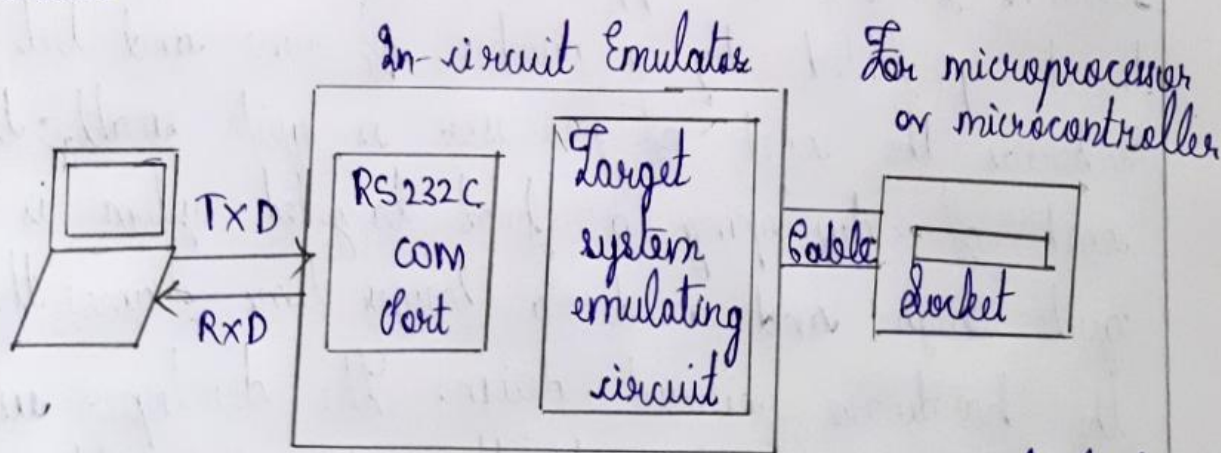 In-circuit Emulator
For microprocessor
or microcontroller
TXD
RXD
RS232C
COM
Port
Target
system
emulating
circuit
Cable
Socket